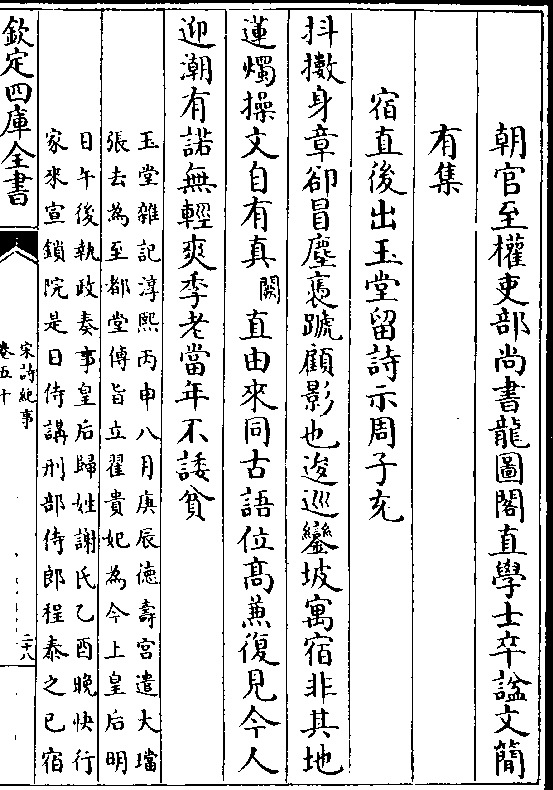 朝官至權吏部尚書龍圖閣直學士卒諡文簡
有集
宿直後出玉堂留詩示周子充
抖擻身章卻冒塵褭蹏顧影也逡巡鑾坡寓宿非其地
蓮燭操文自有真闕直由來同古語位髙蒹復見今人
迎潮有諾無輕爽季老當年不諉貧
玉堂雜記淳熙丙申八月庚辰德壽宮遣大璫
張去為至都堂傅旨立翟貴妃為今上皇后明
日午後執政奏事皇后歸姓謝氏乙酉晚快行
家來宣鎖院是日侍講刑部侍郎程泰之已宿
欽定四庫全書
宋詩紀事
卷五十
二十八